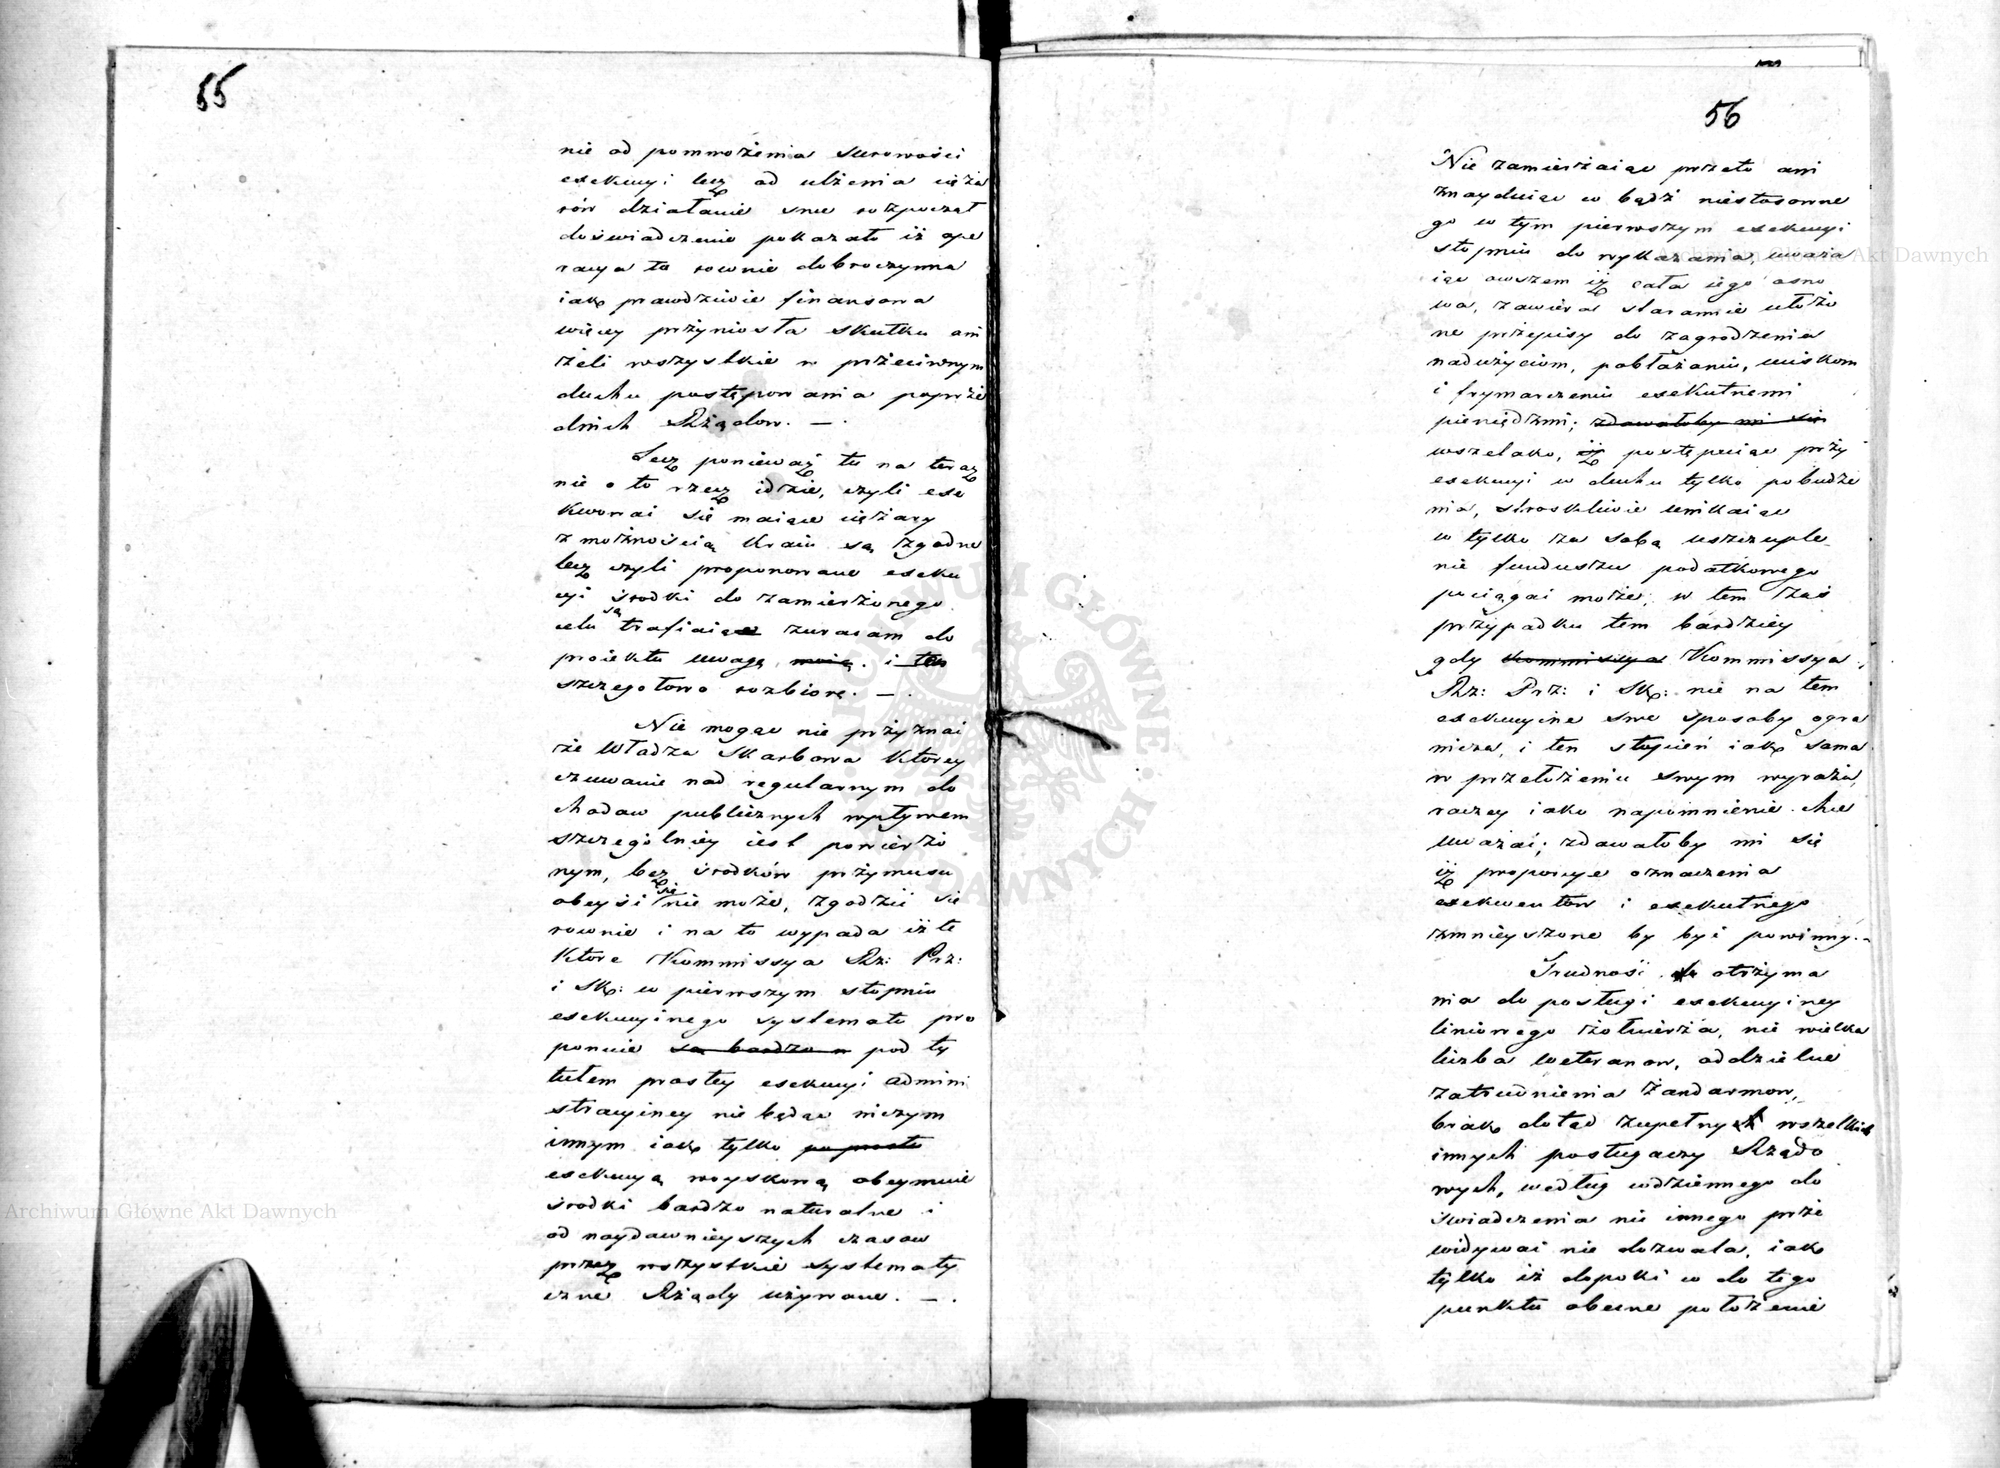 55
nie od pomnożenia surowości
exekucyi lecz od ulżenia cięża
rów działanie swe rozpoczął
doświadczenie pokazało iż ope
racya ta rownie dobroczynna
iak prawdziwie finansowa
więcey przyniosła skutku ani
żeli wszystkie w przeciwnym
duchu postępowania poprze
dnich Rządow. — .
Lecz ponieważ tu na teraz
nie o to rzecz idzie, czyli exe
kwować się maiące ciężary
z możnością Kraiu są zgodne
lecz czyli proponowane exeku
cyi środki do zamierzonego
celu są trafiaiące zwracam do
proiektu uwagę moią. i ten
szczegołowo rozbiorę. — .
Nie mogąc nie przyznać
że Władza Skarbowa Ktorey
czuwanie nad regularnym do
chodow publicznych wpływem
szczegolniey iest powierzo
nym, bez środków przymusu
obeyść się nie może, zgodzić się
rownie i na to wypada iż te
Ktore Kommissya Rz: Prz:
i Sk: w pierwszym stopniu
exekucyinego systematu pro
ponuie są bardzo n pod ty
tułem prostey exekucyi admini
stracyiney nie będąc niczym
innym iak tylko po prostu
exekucyą woyskową obeymuie
środki bardzo naturalne i
od naydawnieyszych czasow
przez wszystkie systematy
czne Rządy używane. — .
56
Nie zamierzaiąc przeto ani
znayduiąc co bądź niestosowne
go w tym pierwszym exekucyi
stopniu do wykazania, uważa
iąc owszem iż cała iego osno
wa, zawiera starannie ułożo
ne przepisy do zagrodzenia
nadużyciom, pobłażaniu, uciskom
i frymarczeniu exekutnemi
pieniędzmi; zdawałoby mi się
wszelako, iż postępuiąc przy
exekucyi w duchu tylko pobudze
nia, stroskliwie unikaiąc
co tylko za sobą uszczuple
nie funduszu podatkowego
pociągać może; w tem zaś
przypadku tem bardziey
gdy Kommissya Kommissya
Rz: Prz: i Sk: nie na tem
exekucyine swe sposoby ogra
nicza, i ten stopień iak sama
w przełożeniu swym wyraża,
raczey iako napomnienie chce
uważać; zdawałoby mi się
iż propozycye oznaczenia
exekwentow i exekutnego
zmnieyszone by być powinny. -
Trudność otrzyma
nia do posługi exekucyiney
liniowego żołnierza, nie wielka
liczba weteranow, oddzielne
zatrudnienia Żandarmow,
brak dotąd zupełnych wszelkich
innych posługaczy Rządo
wych, według codziennego do
świadczenia nic innego prze
widywać nie dozwala, iak
tylko iż dopoki co do tego
punktu obecne położenie